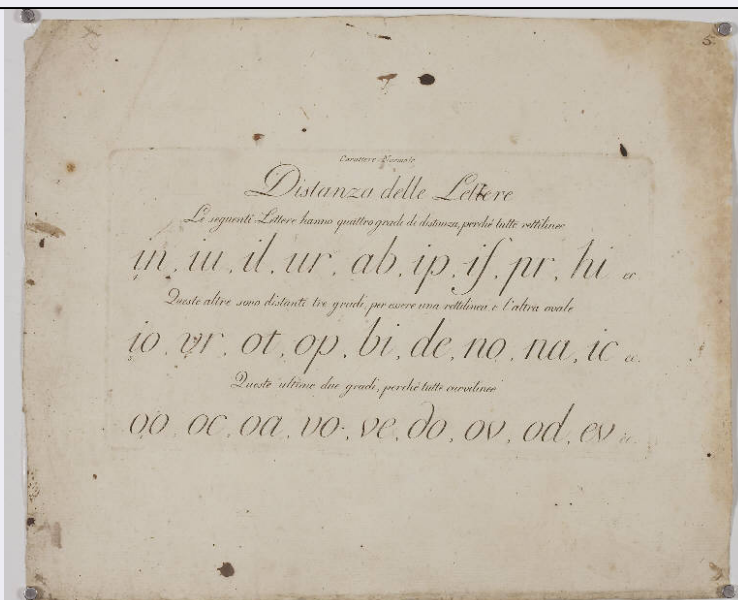 Carattere
Distanza delle Lettere
Le seguenti Lettere hanno quattro gradi di distanza, perchè tutte rettilinee
in, iu, il, ur, ab, ip, iſ, pr, hi &c.
Queste altre sono distanti tre gradi, per essere una rettilinea, e l'altra ovale
io, vr, ot, op, bi, de, no, na, ic &c.
Queste ultime due gradi, perchè tutte curvilinee
oo, oc, oa, vo, ve, do, ov, od, ev &c.